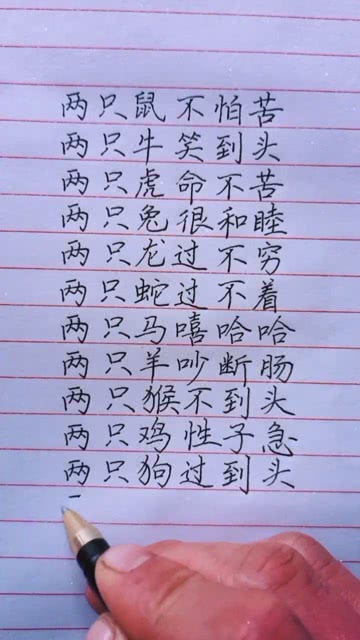 两只鼠不怕苦
两只牛笑到头
两只虎命不苦
两只兔很和睦
两只龙过不穷
两只蛇过不着
两只马嘻哈哈
两只羊吵断肠
两只猴不到头
两只鸡性子急
两只狗过到头